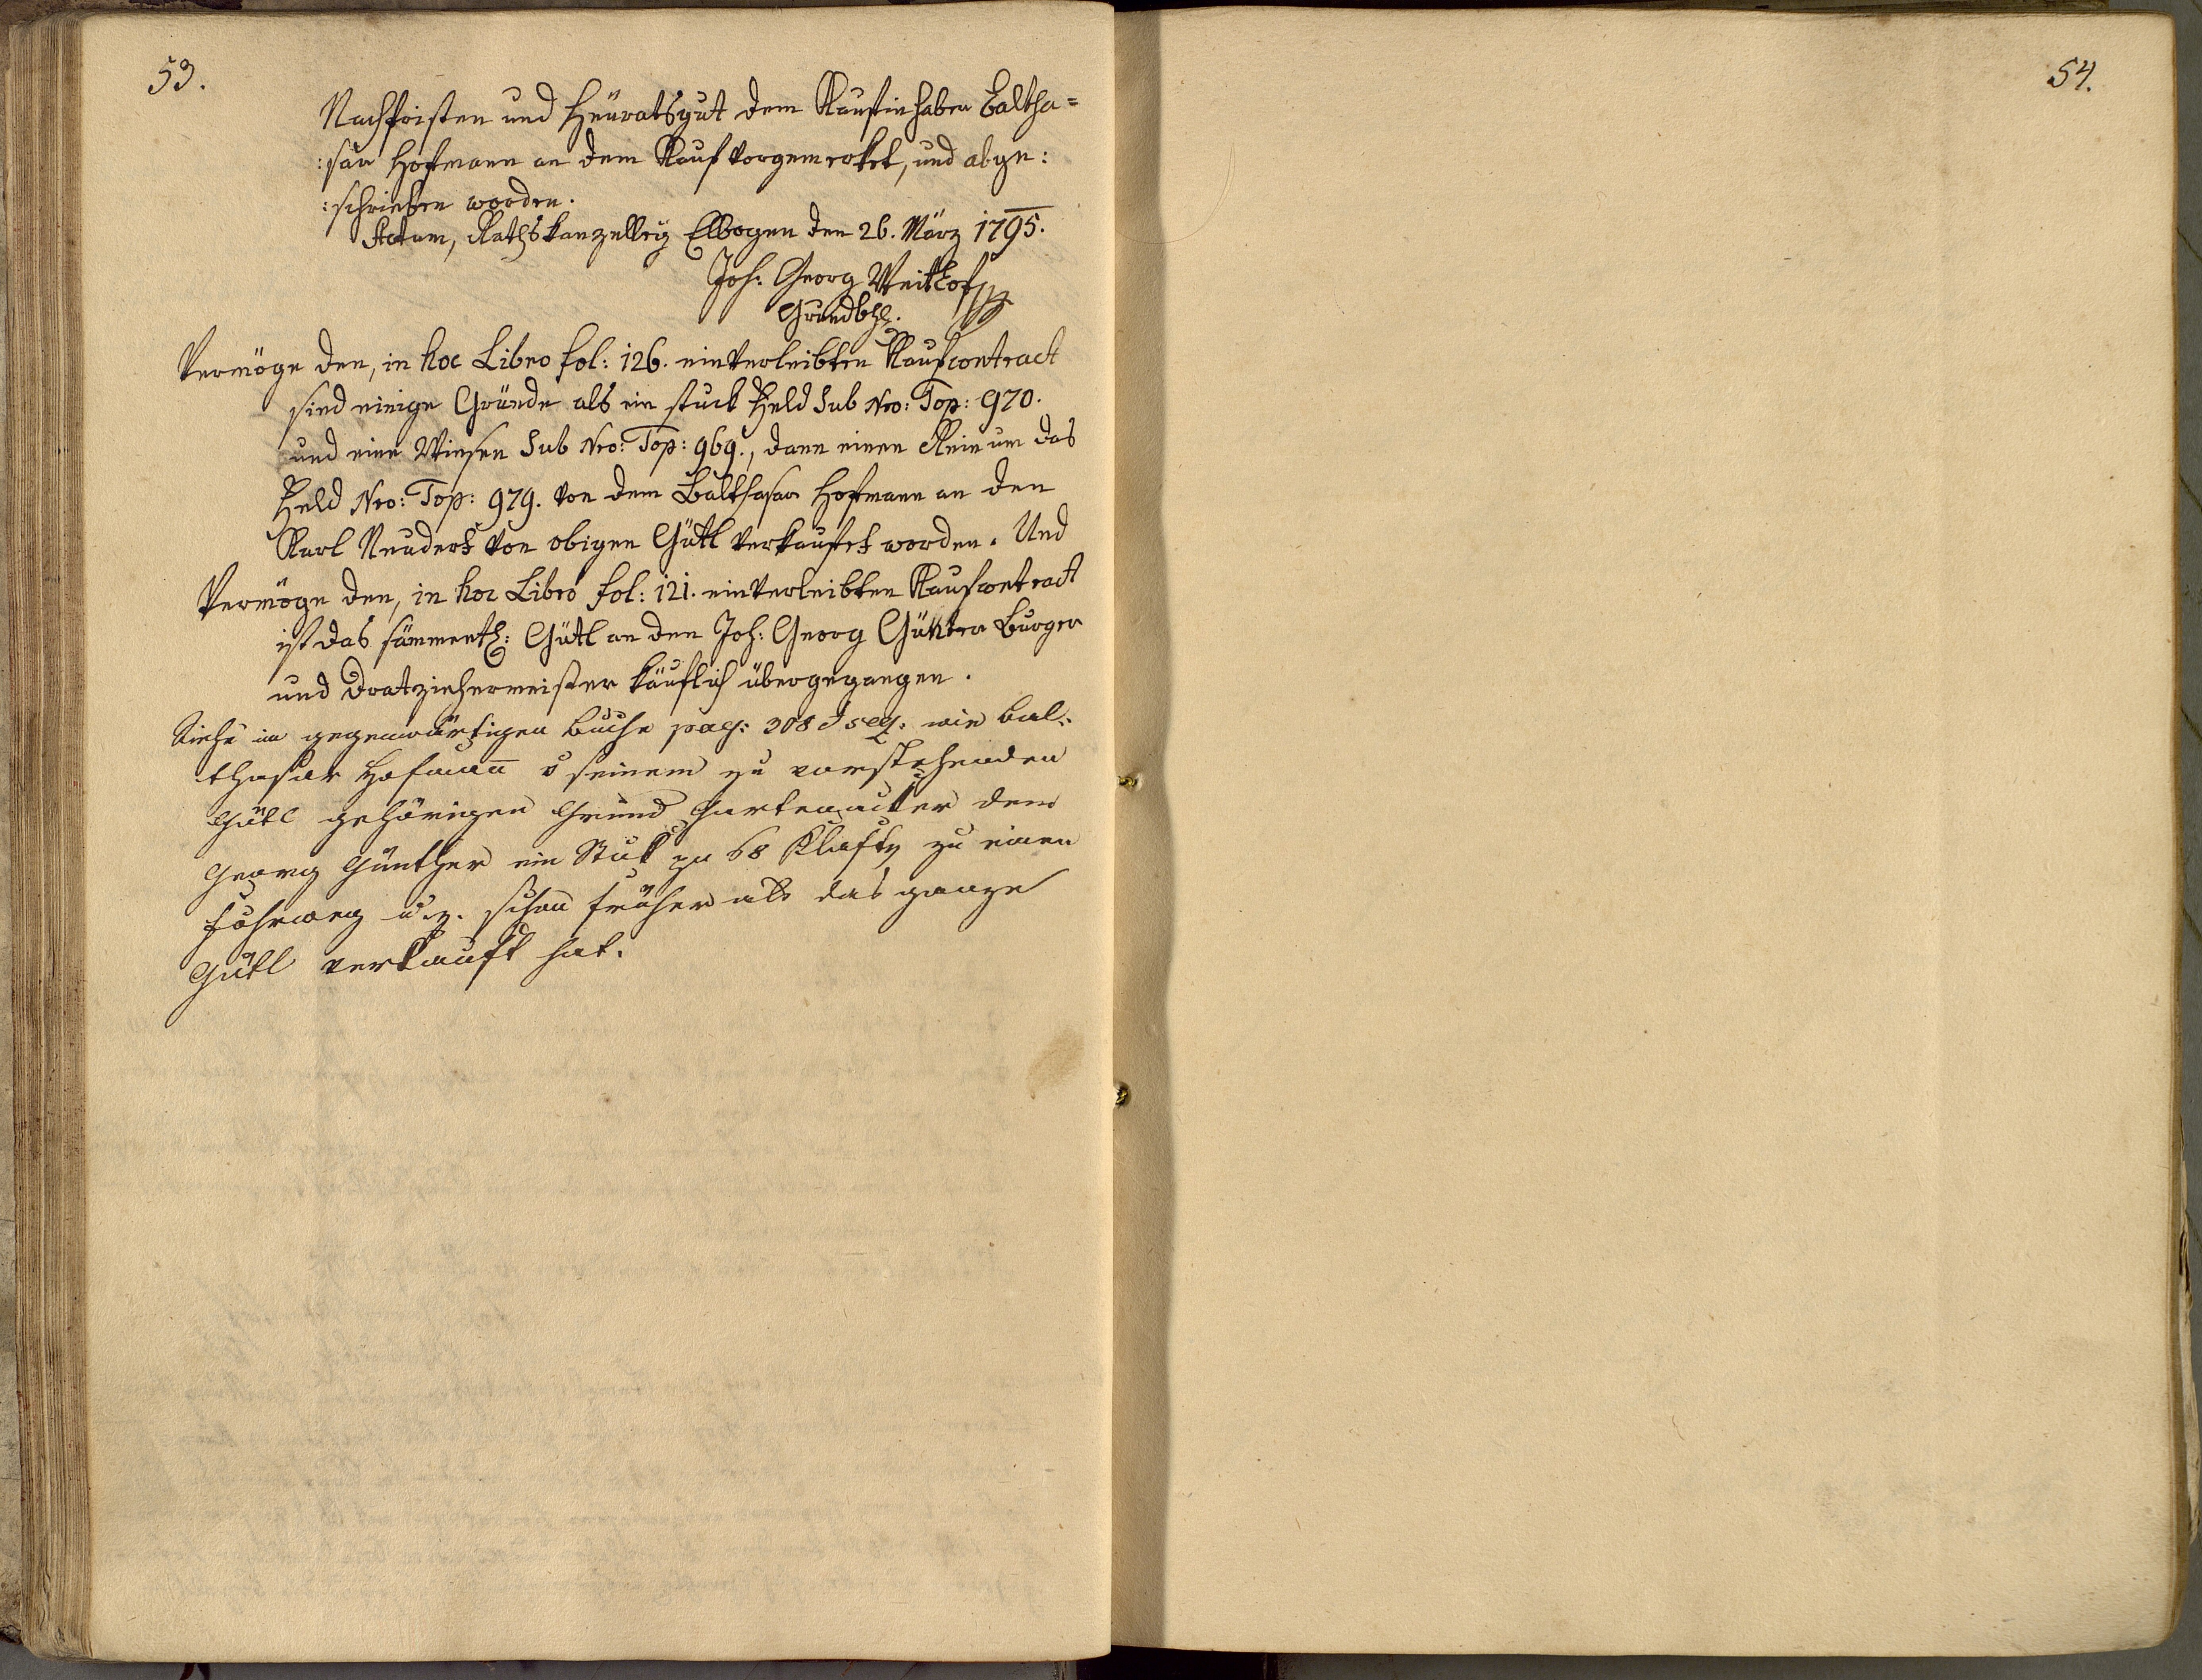 53.
Nachfristen und Heüratsgut dem Kaufinhaber Baltha=
:sar Hoffmann an dem Kauf vorgemerket, und abge:
:schrieben worden.
Actum, Rathskanzelley Elbogen den 26. März 1795.
Joh: Georg Veithof
Grundbhh.
Vermöge den, in hoc Libro fol: 126. einverleibten Kaufcontract
sind einige Gründe als ein stuck Feld Sub Nro: Top: 970.
und eine Wiesen Sub Nro: Top: 969., dann einen Rein um das
Feld Nro: Top: 979. von dem Balthasar Hoffmann an den
Karl Neudert von obigen Gütl verkaufet worden. Und
Vermöge den, in hoc Libro fol: 121. einverleibten Kaufcontract
ist das sämmentl: Gütl an den Joh: Georg Günter Burger
und Dratziehermeister käuflich übergegangen.
Siehe im gegenwärtigen Buche pag: 308 & seq: wie Bal:
thasar Hofmann v seinem zu vorstehenden
Gütl gehörigen Grund Gartenacker dem
Georg Günther ein Stuk zu 68 Klafter zu einen
Fuhrweg u. z. schon früher als das ganze
Gütl verkauft hat.
54.